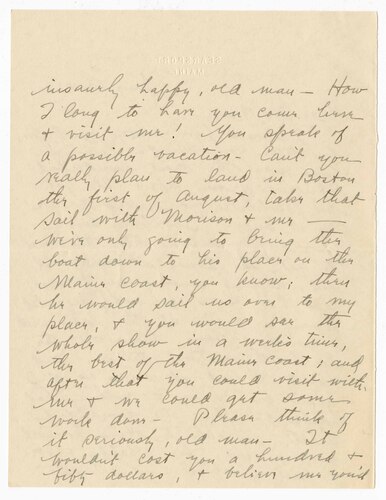 insanely happy, old man - How
I long to have you come here
& visit me! You speak of
a possible vacation - Can't you
really plan to land in Boston
the first of August, take that
sail with Morison & me —
We're only going to bring the
boat down to his place on the
Maine Coast, you know; then
he would sail us over to my
place, & you would see the
whole show in a week's time,
the best of the Maine Coast; and
after that you could visit with
me & we could get some
work done - Please think of
it seriously, old man - It
wouldn't cost you a hundred &
fifty dollars, & believe me you'd